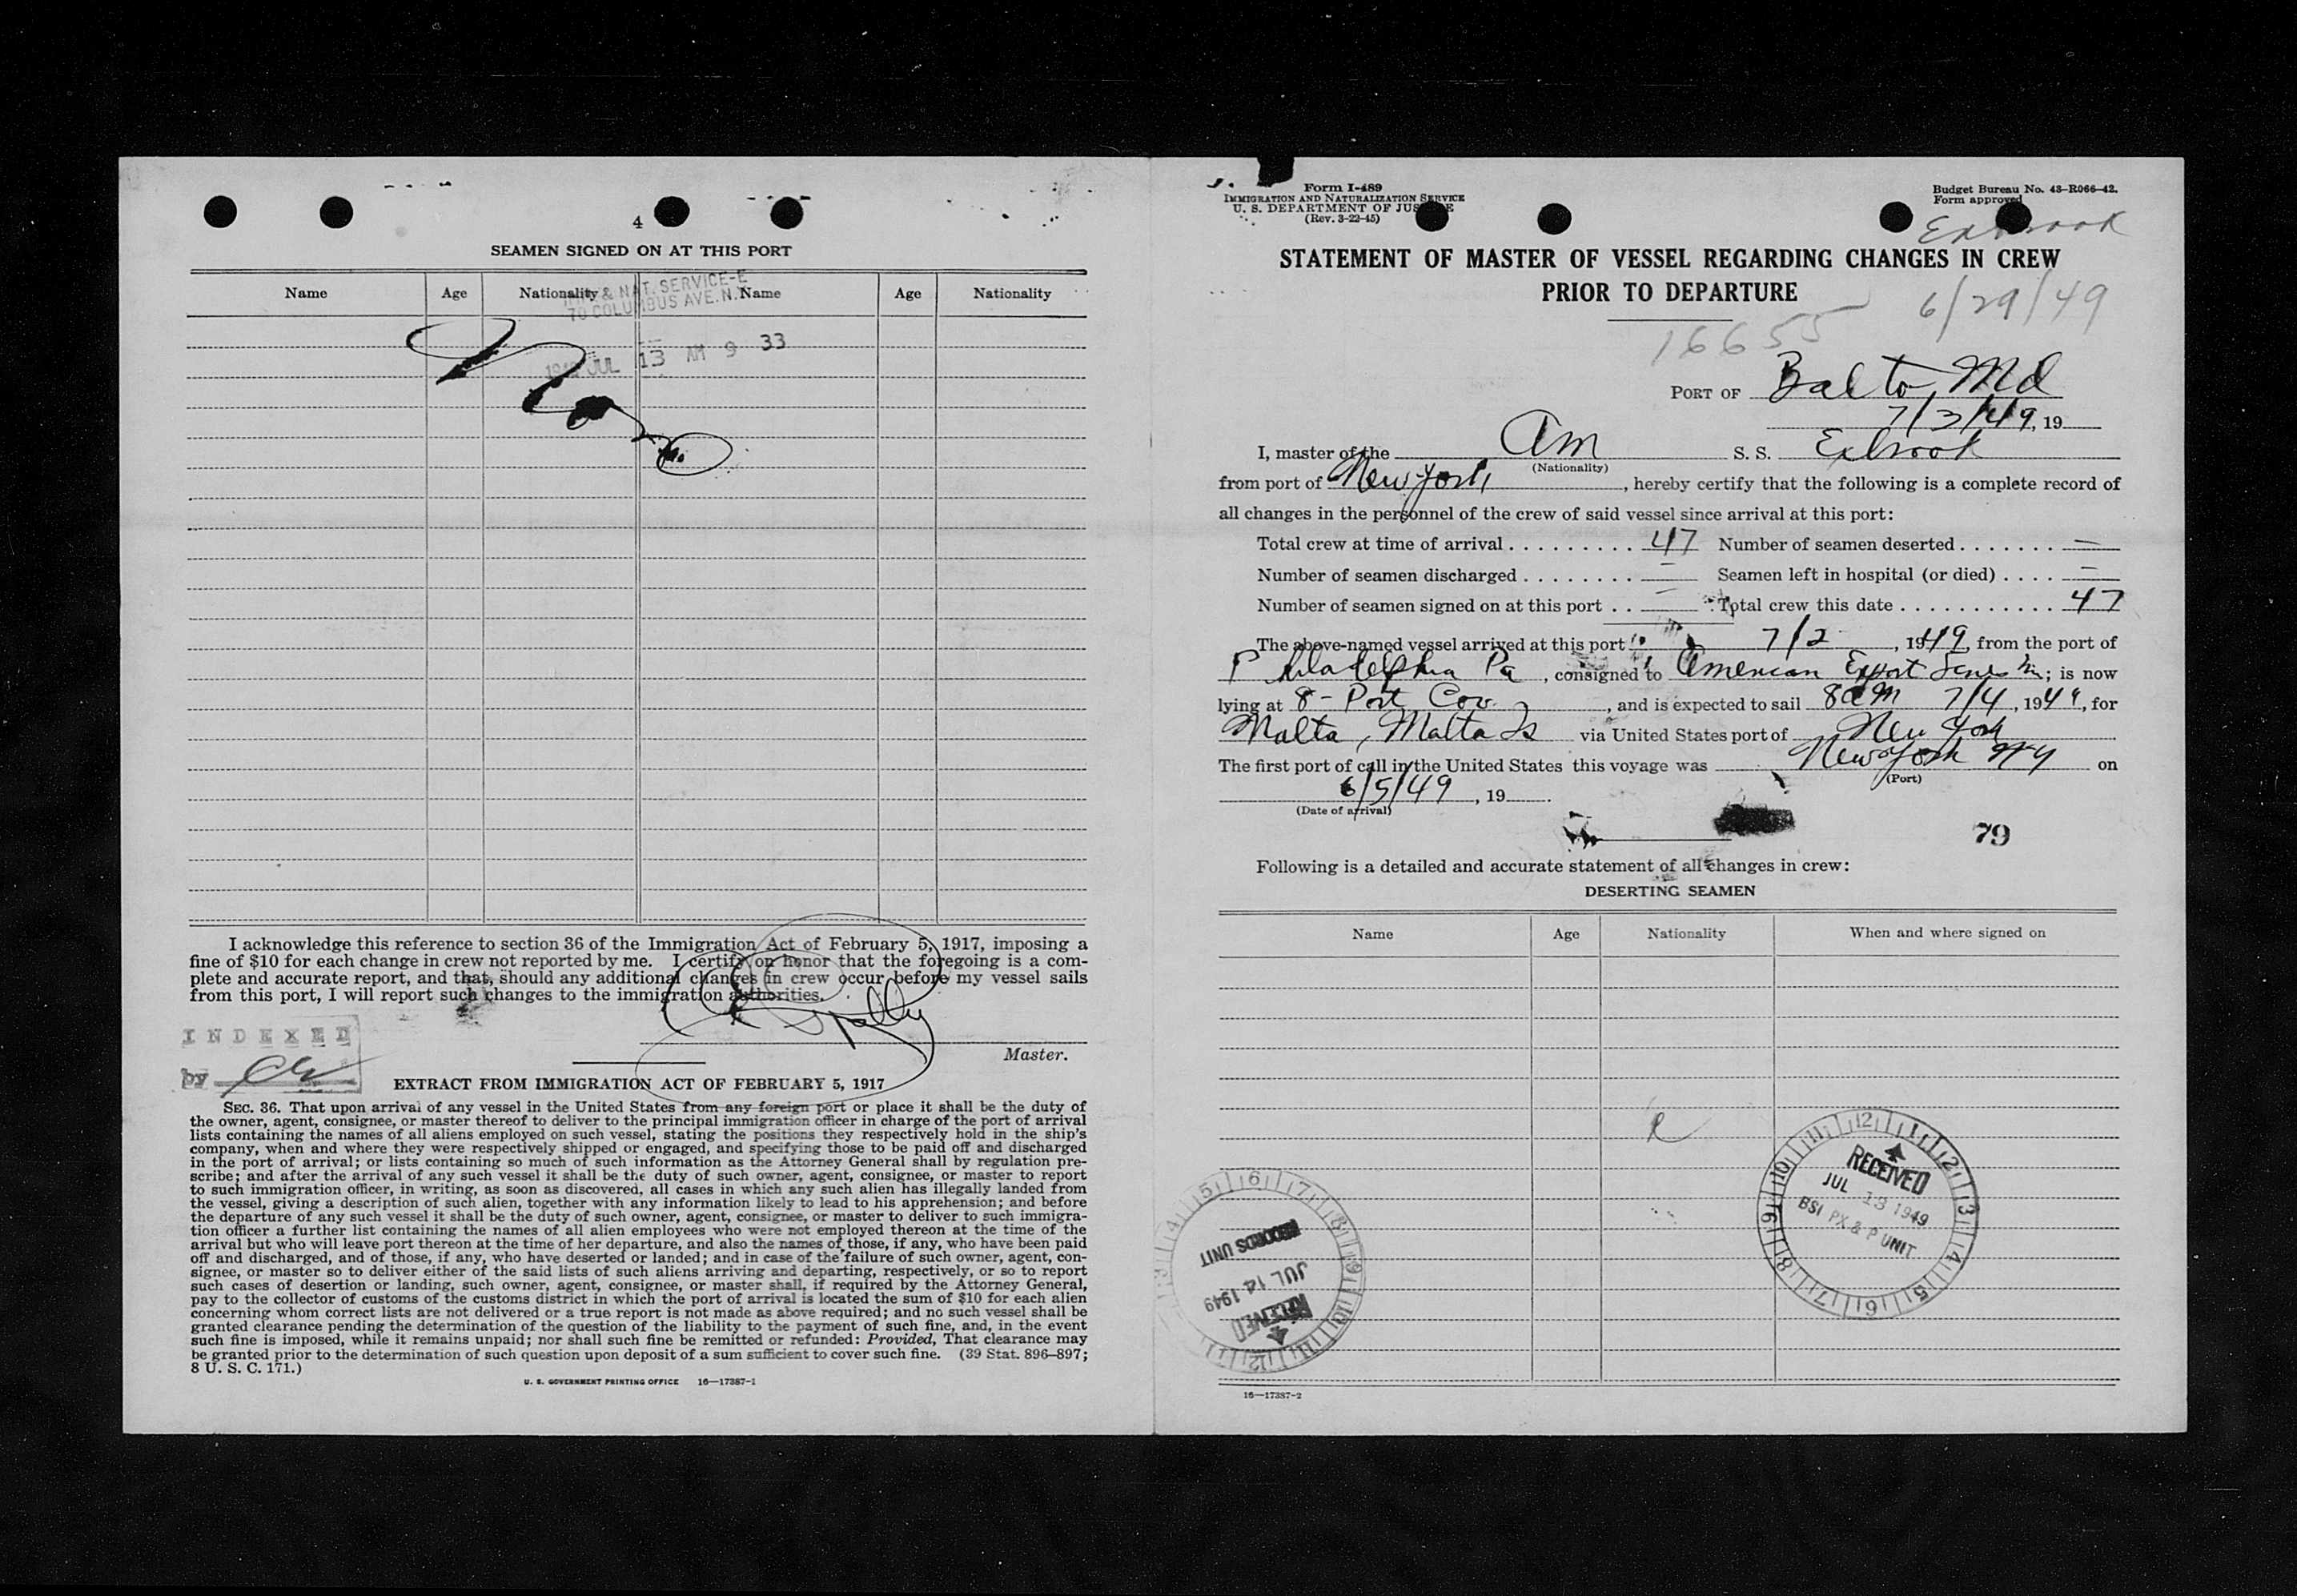 4
SEAMEN SIGNED ON AT THIS PORT
Name Age Nationality Name Age Nationality
& NAT. SERVICE-E
70 COLUMBUS AVE. N.Y.
JUL 13 AM 9 33
None
I acknowledge this reference to section 36 of the Immigration Act of February 5, 1917, imposing a
fine of $10 for each change in crew not reported by me. I certify on honor that the foregoing is a com-
plete and accurate report, and that, should any additional changes in crew occur before my vessel sails
from this port, I will report such changes to the immigration authorities.
Master.
INDEXED
by
EXTRACT FROM IMMIGRATION ACT OF FEBRUARY 5, 1917
SEC. 36. That upon arrival of any vessel in the United States from any foreign port or place it shall be the duty of
the owner, agent, consignee, or master thereof to deliver to the principal immigration officer in charge of the port of arrival
lists containing the names of all aliens employed on such vessel, stating the positions they respectively hold in the ship's
company, when and where they were respectively shipped or engaged, and specifying those to be paid off and discharged
in the port of arrival; or lists containing so much of such information as the Attorney General shall by regulation pre-
scribe; and after the arrival of any such vessel it shall be the duty of such owner, agent, consignee, or master to report
to such immigration officer, in writing, as soon as discovered, all cases in which any such alien has illegally landed from
the vessel, giving a description of such alien, together with any information likely to lead to his apprehension; and before
the departure of any such vessel it shall be the duty of such owner, agent, consignee, or master to deliver to such immigra-
tion officer a further list containing the names of all alien employees who were not employed thereon at the time of the
arrival but who will leave port thereon at the time of her departure, and also the names of those, if any, who have been paid
off and discharged, and of those, if any, who have deserted or landed; and in case of the failure of such owner, agent, con-
signee, or master so to deliver either of the said lists of such aliens arriving and departing, respectively, or so to report
such cases of desertion or landing, such owner, agent, consignee, or master shall, if required by the Attorney General,
pay to the collector of customs of the customs district in which the port of arrival is located the sum of $10 for each alien
concerning whom correct lists are not delivered or a true report is not made as above required; and no such vessel shall be
granted clearance pending the determination of the question of the liability to the payment of such fine, and, in the event
such fine is imposed, while it remains unpaid; nor shall such fine be remitted or refunded: Provided, That clearance may
be granted prior to the determination of such question upon deposit of a sum sufficient to cover such fine. (39 Stat. 896-897;
8 U. S. C. 171.)
U. S. GOVERNMENT PRINTING OFFICE 16—17387-1
Form I-489
IMMIGRATION AND NATURALIZATION SERVICE
U. S. DEPARTMENT OF JUSTICE
(Rev. 3-22-45)
Budget Bureau No. 43-R066-42.
Form approved
Exbrook
STATEMENT OF MASTER OF VESSEL REGARDING CHANGES IN CREW
PRIOR TO DEPARTURE
6/29/49
16655
PORT OF Balto, Md
7/3/49, 19
I, master of the Am S. S. Exbrook
(Nationality)
from port of New York, hereby certify that the following is a complete record of
all changes in the personnel of the crew of said vessel since arrival at this port:
Total crew at time of arrival 47 Number of seamen deserted —
Number of seamen discharged — Seamen left in hospital (or died) —
Number of seamen signed on at this port — Total crew this date 47
The above-named vessel arrived at this port 7/2, 1949, from the port of
Philadelphia Pa, consigned to American Export Lines Inc; is now
lying at 8 - Port Cov., and is expected to sail 8AM 7/4, 1949, for
Malta, Malta Is via United States port of New York
The first port of call in the United States this voyage was New York NY on
(Port)
6/5/49, 19
(Date of arrival)
79
Following is a detailed and accurate statement of all changes in crew:
DESERTING SEAMEN
Name Age Nationality When and where signed on
RECEIVED
JUL 13 1949
BSI PX & P UNIT
12 1 2 3 4 5 6 7 8 9 10 11
RECEIVED
JUL 14 1949
RECORDS UNIT
16—17387-2